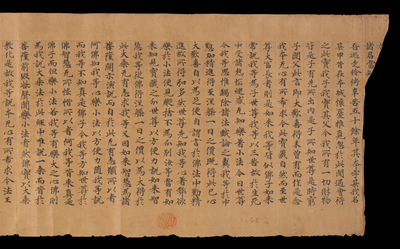 諸君當
吾逃走伶俜辛苦五十餘年其本字某我名
某甲昔在本城懷憂推覓忽於此間遇會得
之此實我子我實其父今我所有一切財物
皆是子有先所出內是子所知世尊是時窮
子聞父此言即大歡喜得未曾有而作是念
我本无心有所希求今此寶藏自然而至世
尊大富長者則是如來我等皆似佛子如來
常說我等為子世尊我等以三苦故於生死
中受諸熱惱迷惑无知樂著小法今日世尊
令我等思惟蠲除諸法戲論之糞我等於中
懃加精進得至涅槃一日之價既得此已心
大歡喜自以為足便自謂言於佛法中懃精
進故所得弘多然世尊先知我等心著弊欲
樂於小法便見縱捨不為分別汝等當有如
來知見寶藏之分世尊以方便力說如來智
慧我等從佛得涅槃一日之價以為大得於
此大乘无有志求我等又因如來智慧為諸
菩薩開示演說而自於此无有志願所以者
何佛知我等心樂小法以方便力隨我等說
而我等不知真是佛子今我等方知世尊於
佛智慧无所悋惜所以者何我等昔來真是
佛子而但樂小法若我等有樂大之心佛則
為我說大乘法於此經中唯說一乘而昔於
菩薩前毀呰聲聞樂小法者然佛實以大乘
教化是故我等說本无心有所希求今法王